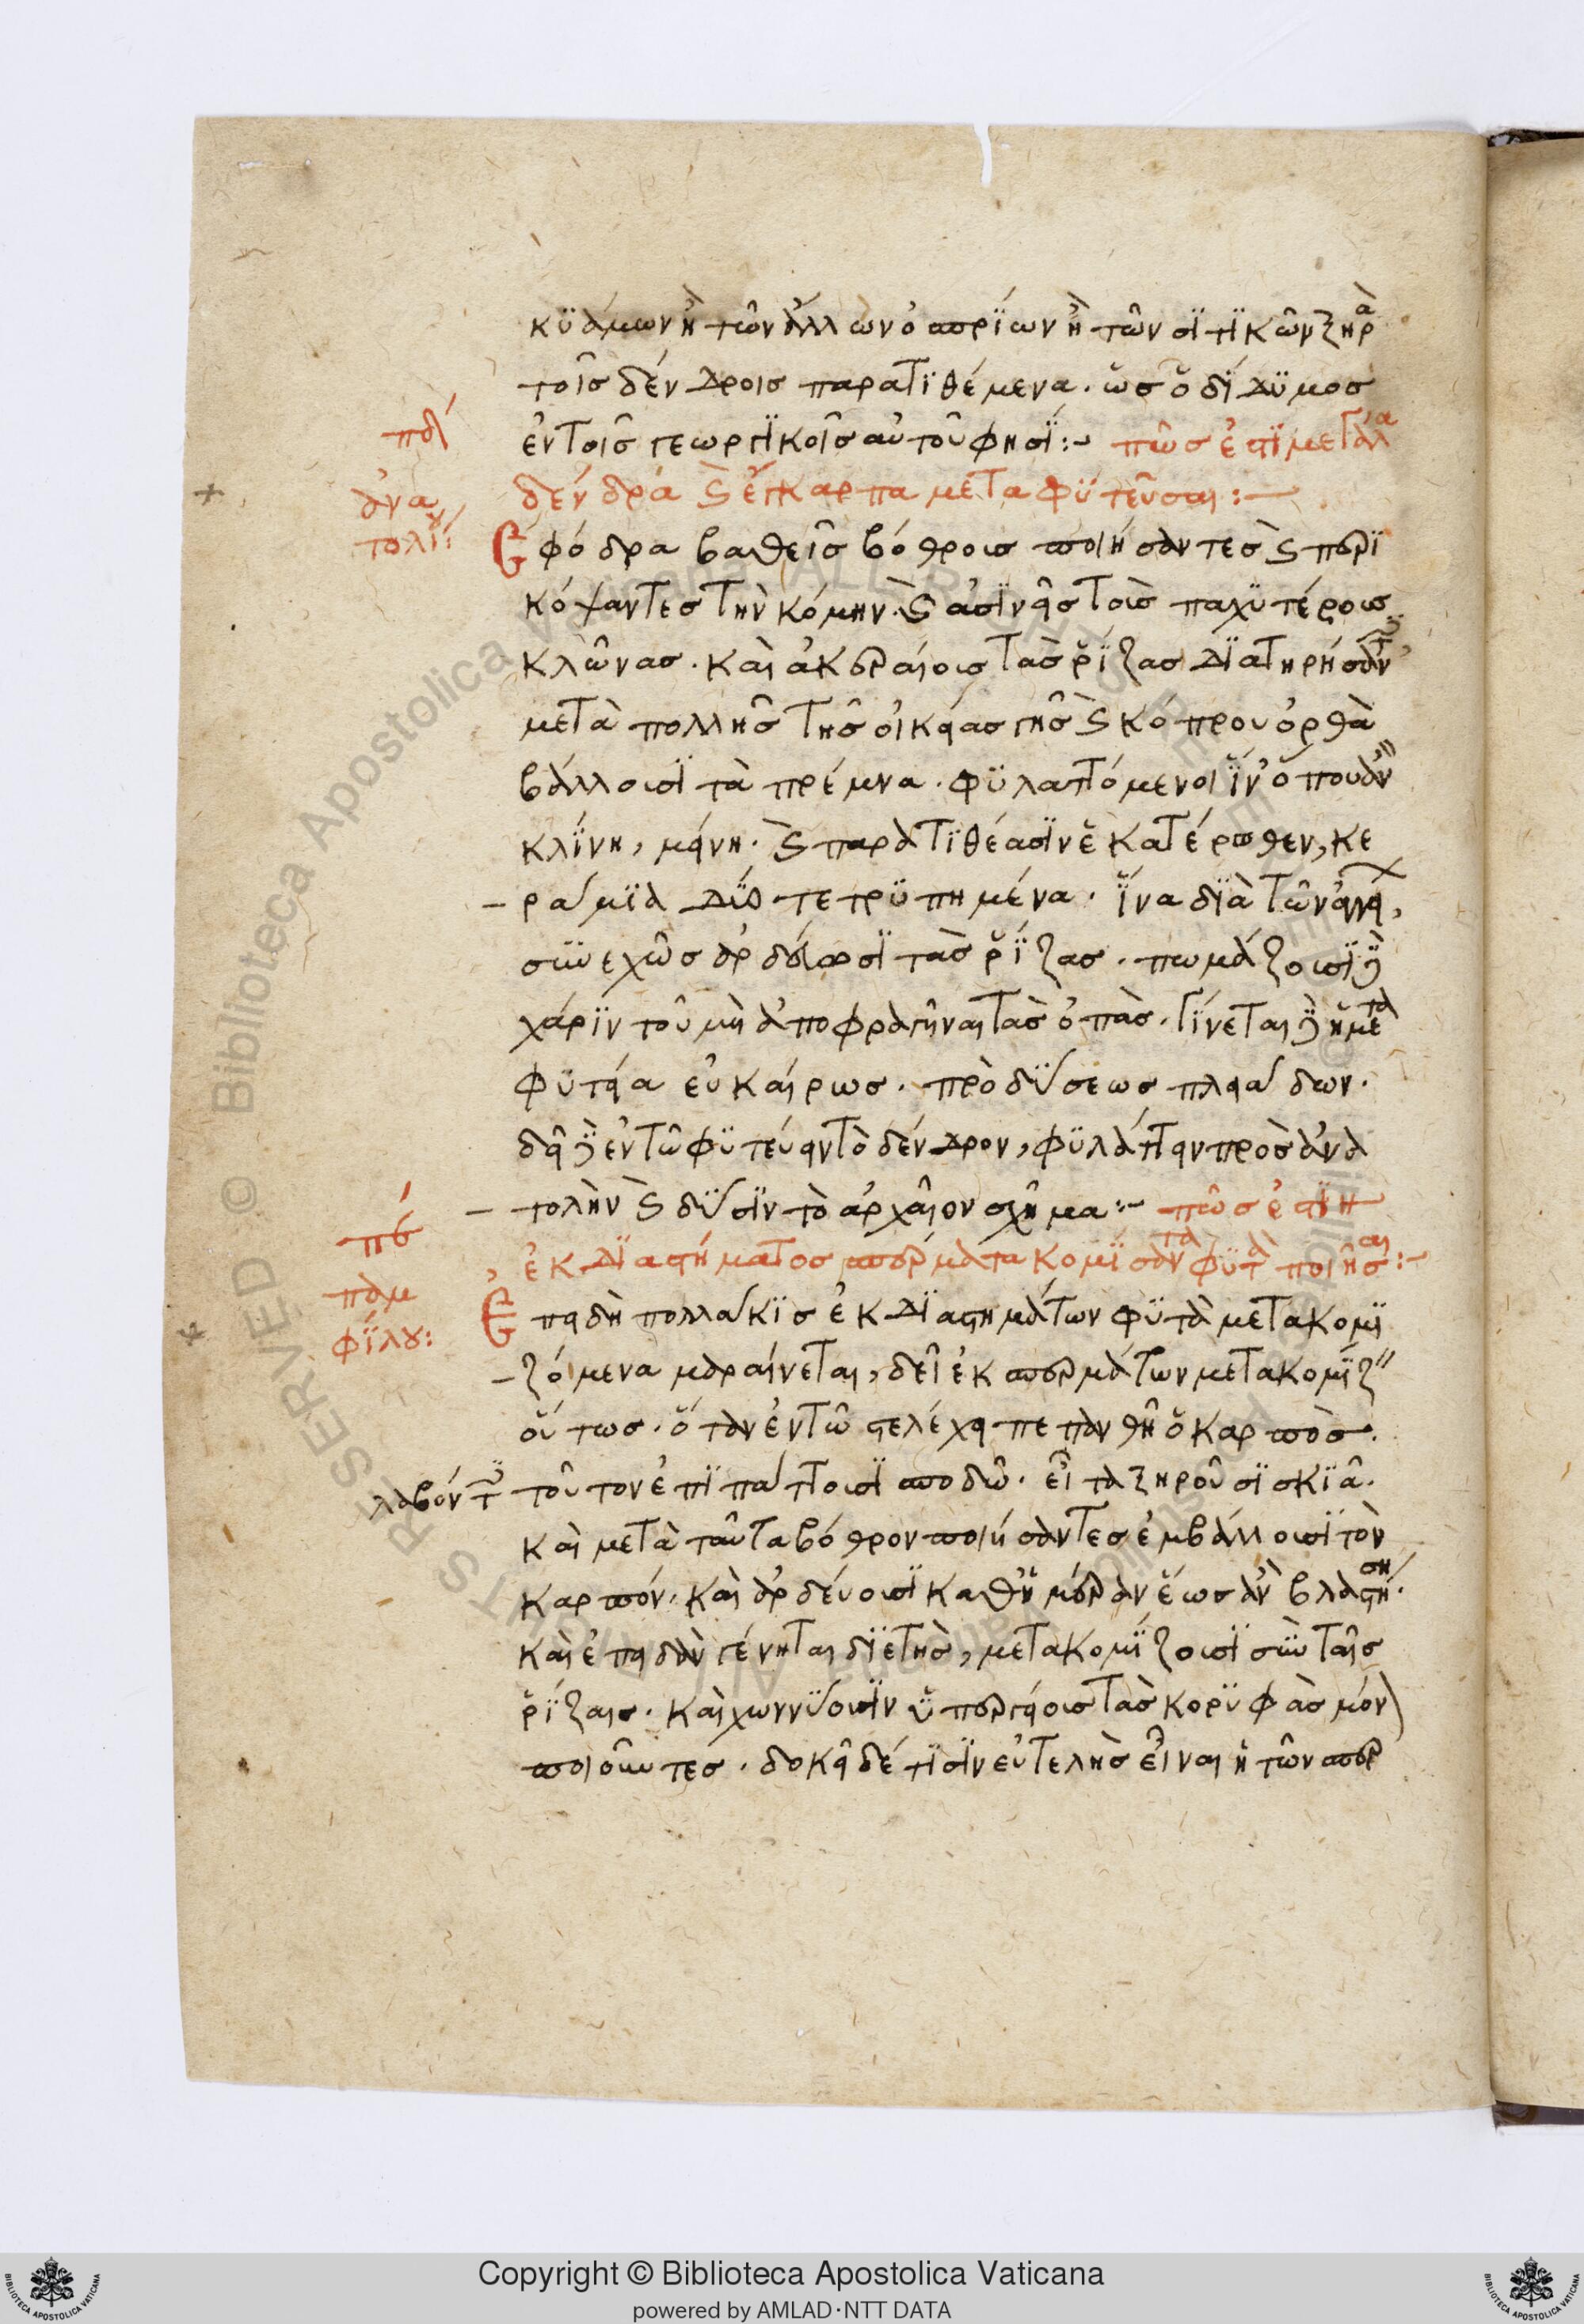 κϋάμων ἢ τῶν ἄλλων ὀσπρΐων ἢ τῶν σϊτϊκῶν ξηρὰ
τοῖς δένδροις παρατϊθέμενα. ὡς ὁ δΐδϋμος
ἐν τοῖς γεωργϊκοῖς αὐτοῦ φησΐ:~ πῶς ἐπϊ μεγάλα
δένδρα ϗ ἔγκαρπα μεταφϋτεῦσαι:—
πδ΄
ἀνα
τολΐου:
Σφόδρα βαθεῖς βόθροις ποιήσαντες ϗ περϊ
κόψαντες τὴν κόμην. ϗ ἀσϊνεῖς τοὺς παχϋτέρους
κλῶνας. καὶ ἀκεραίους τὰς ῥΐζας δϊατηρήσαντ
μετὰ πολλῆς τῆς οἰκείας γῆς ϗ κόπρου ὀρθὰ
βάλλουσϊ τὰ πρέμνα. φϋλαττόμενοι ἵν' ὅπου ἂν
κλΐνη, μένη. ϗ παρατϊθέασϊν ἑκατέρωθεν, κε
ραμΐδα δΰο τετρϋπημένα. ἵνα δϊὰ τῶν
συνεχῶς ἀρδεύωσϊ τὰς ῥΐζας. πωμάζουσϊ δὲ
χάρϊν τοῦ μὴ ἀποφραγῆναι τὰς ὀπάς. γΐνεται δὲ ἡ μετα
φϋτεία εὐκαίρως. πρὸ δΰσεως πλειάδων.
δεῖ δὲ ἐν τῶ φϋτεύειν τὸ δένδρον, φϋλάττειν πρὸς ἀνα
τολὴν ϗ δΰσϊν τὸ ἀρχαῖον σχῆμα:~ πῶς ἐπϊ
πε΄
παμ
φΐλου:
ἐκ δϊαστήματος σπέρματα κομϊσαντα φϋτὰ ποιῆσαι:~
Ἐπειδὴ πολλάκϊς ἐκ δϊαστημάτων φϋτὰ μετακομϊ
ζόμενα μαραίνεται, δεῖ ἐκ σπερμάτων μετακομΐζ
οὕτως. ὅταν ἐν τῶ στελέχει πεπανθῆ ὁ καρπός.
λαβόντ τοῦτον ἐπϊπάττουσϊ σποδῶ. εἶτα ξηροῦσϊ σκϊᾶ.
καὶ μετὰ ταῦτα βόθρον ποιήσαντες ἐμβάλλουσϊ τὸν
καρπόν. καὶ ἀρδεύουσϊ καθ' ἡμέραν ἕως ἂν βλαστήση.
καὶ ἐπειδὰν γένηται δϊετής, μετακομΐζουσϊ σὺν ταῖς
ῥΐζαις. καὶ χωννΰουσϊν ϋπεργείους τὰς κορϋφὰς μόν
ποιοῦντες. δοκεῖ δέ τϊσϊν εὐτελὴς εἶναι ἡ τῶν σπερ
Copyright © Biblioteca Apostolica Vaticana
powered by AMLAD·NTT DATA